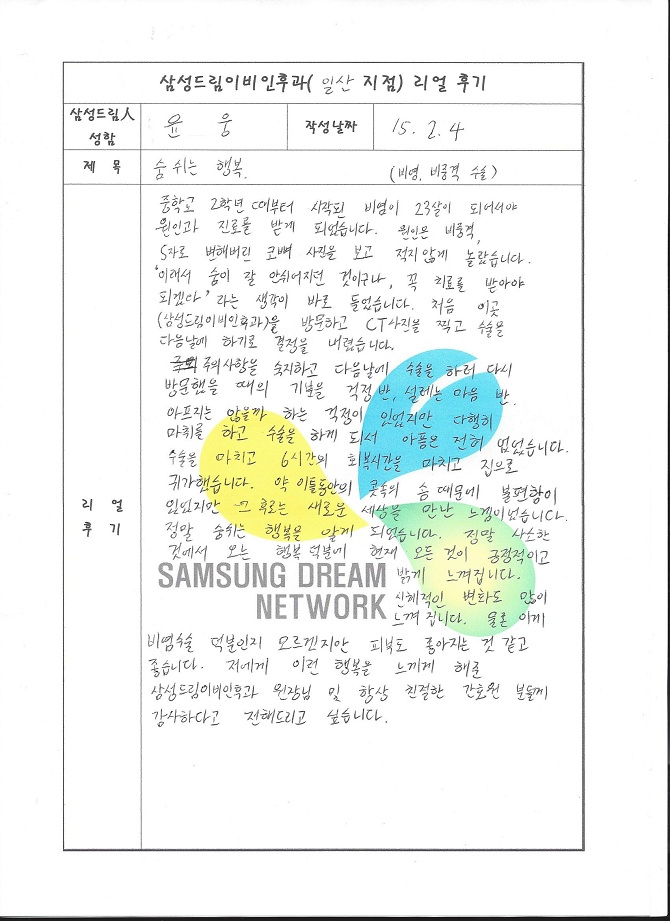 삼성드림이비인후과( 일산 지점) 리얼 후기
삼성드림人
성함
윤 웅
작성날짜
15. 2. 4
제 목
숨 쉬는 행복.
(비염, 비중격 수술)
리 얼
후 기
중학교 2학년 때부터 시작된 비염이 23살이 되어서야
원인과 진료를 받게 되었습니다. 원인은 비중격,
S자로 변해버린 코뼈 사진을 보고 적지않게 놀랐습니다.
'이래서 숨이 잘 안쉬어지던 것이구나, 꼭 치료를 받아야
되겠다' 라는 생각이 바로 들었습니다. 처음 이곳
(삼성드림이비인후과)을 방문하고 CT사진을 찍고 수술을
다음날에 하기로 결정을 내렸습니다.
주의사항을 숙지하고 다음날에 수술을 하러 다시
방문했을 때의 기분은 걱정 반, 설레는 마음 반.
아프지는 않을까 하는 걱정이 있었지만 다행히
마취를 하고 수술을 하게 되서 아픔은 전혀 없었습니다.
수술을 마치고 6시간의 회복시간을 마치고 집으로
귀가했습니다. 약 이틀동안의 콧속의 솜 때문에 불편함이
있었지만 그 후로는 새로운 세상을 만난 느낌이었습니다.
정말 숨쉬는 행복을 알게 되었습니다. 정말 사소한
것에서 오는 행복 덕분에 현재 모든 것이 긍정적이고
밝게 느껴집니다.
SAMSUNG DREAM
NETWORK
신체적인 변화도 많이
느껴 집니다. 물론 이게
비염수술 덕분인지 모르겠지만 피부도 좋아지는 것 같고
좋습니다. 저에게 이런 행복을 느끼게 해준
삼성드림이비인후과 원장님 및 항상 친절한 간호원 분들께
감사하다고 전해드리고 싶습니다.